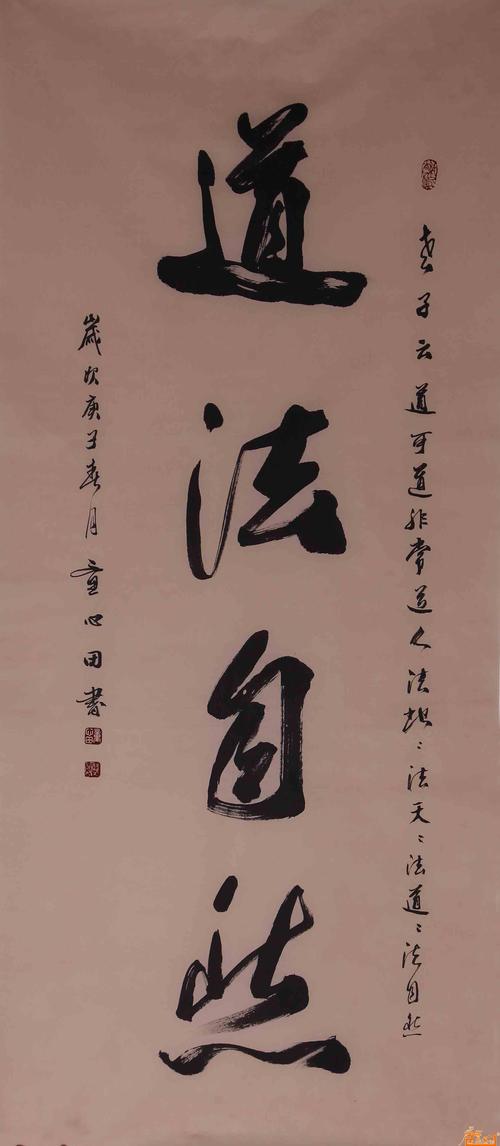 老子云道可道非常道人法地〻法天〻法道〻法自然
道法自然
歲次庚子春月童心田書